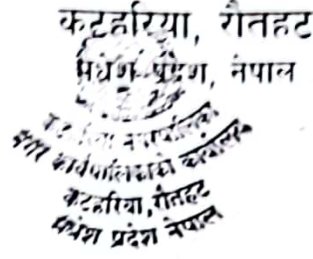 कटहरिया, रौतहट
मधेश प्रदेश, नेपाल
नगरपालिका
नगर कार्यपालिकाको कार्यालय
कटहरिया, रौतहट
मधेश प्रदेश नेपाल